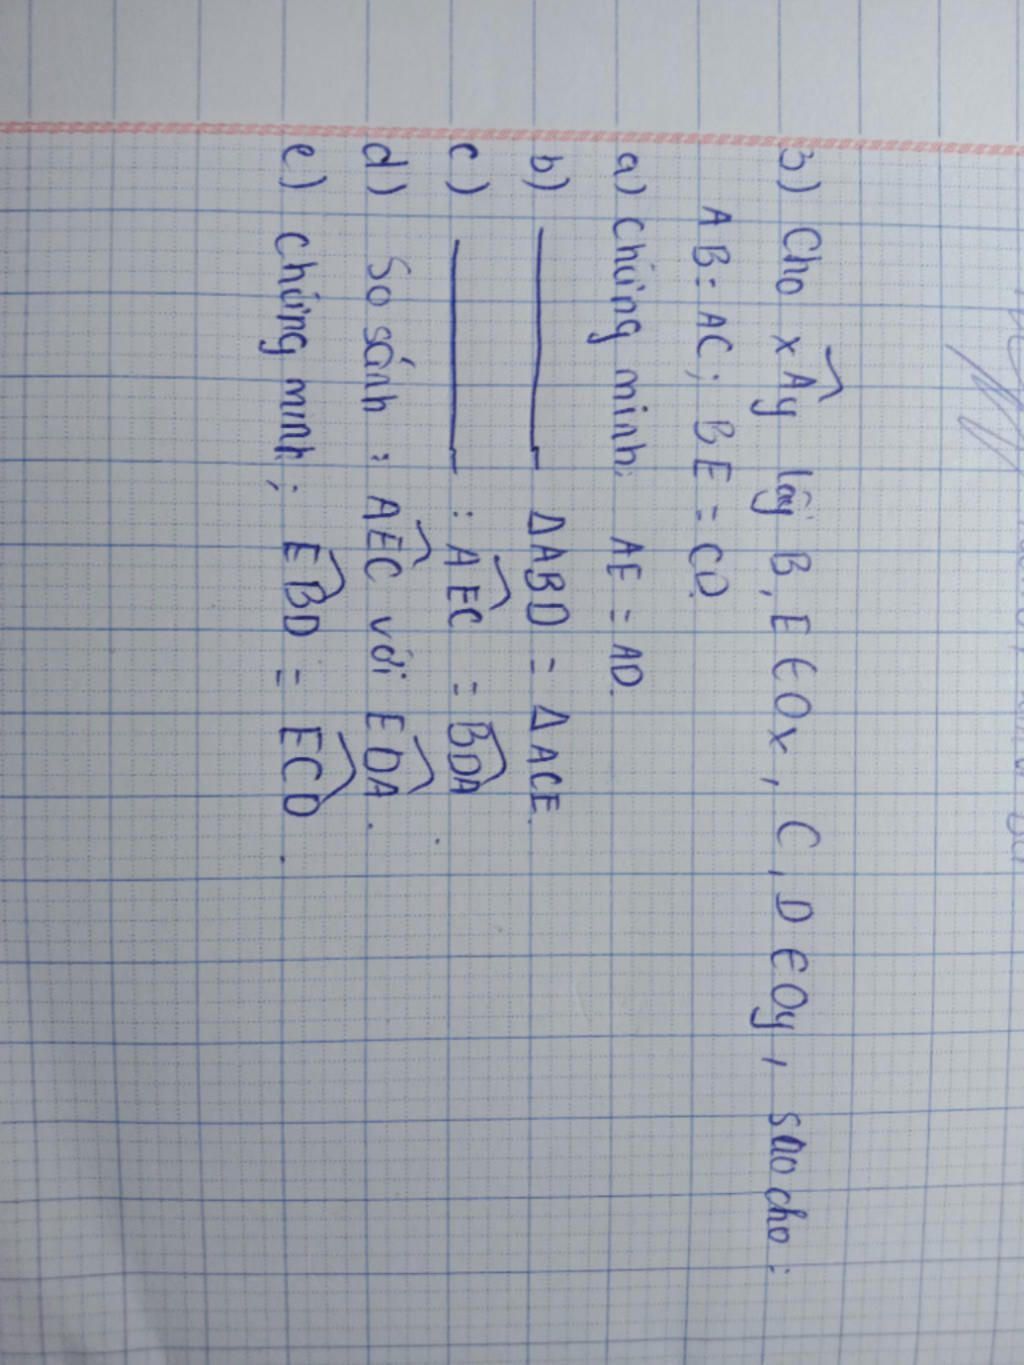 3) Cho xÂy lấy B, E ∈ Ox, C, D ∈ Oy, sao cho:
AB = AC; BE = CD.
a) Chứng minh: AE = AD.
b) ———— ΔABD = ΔACE.
c) ———— : AEC = BDA
d) So sánh : AEC với EDA.
e) Chứng minh; EBD = ECD.